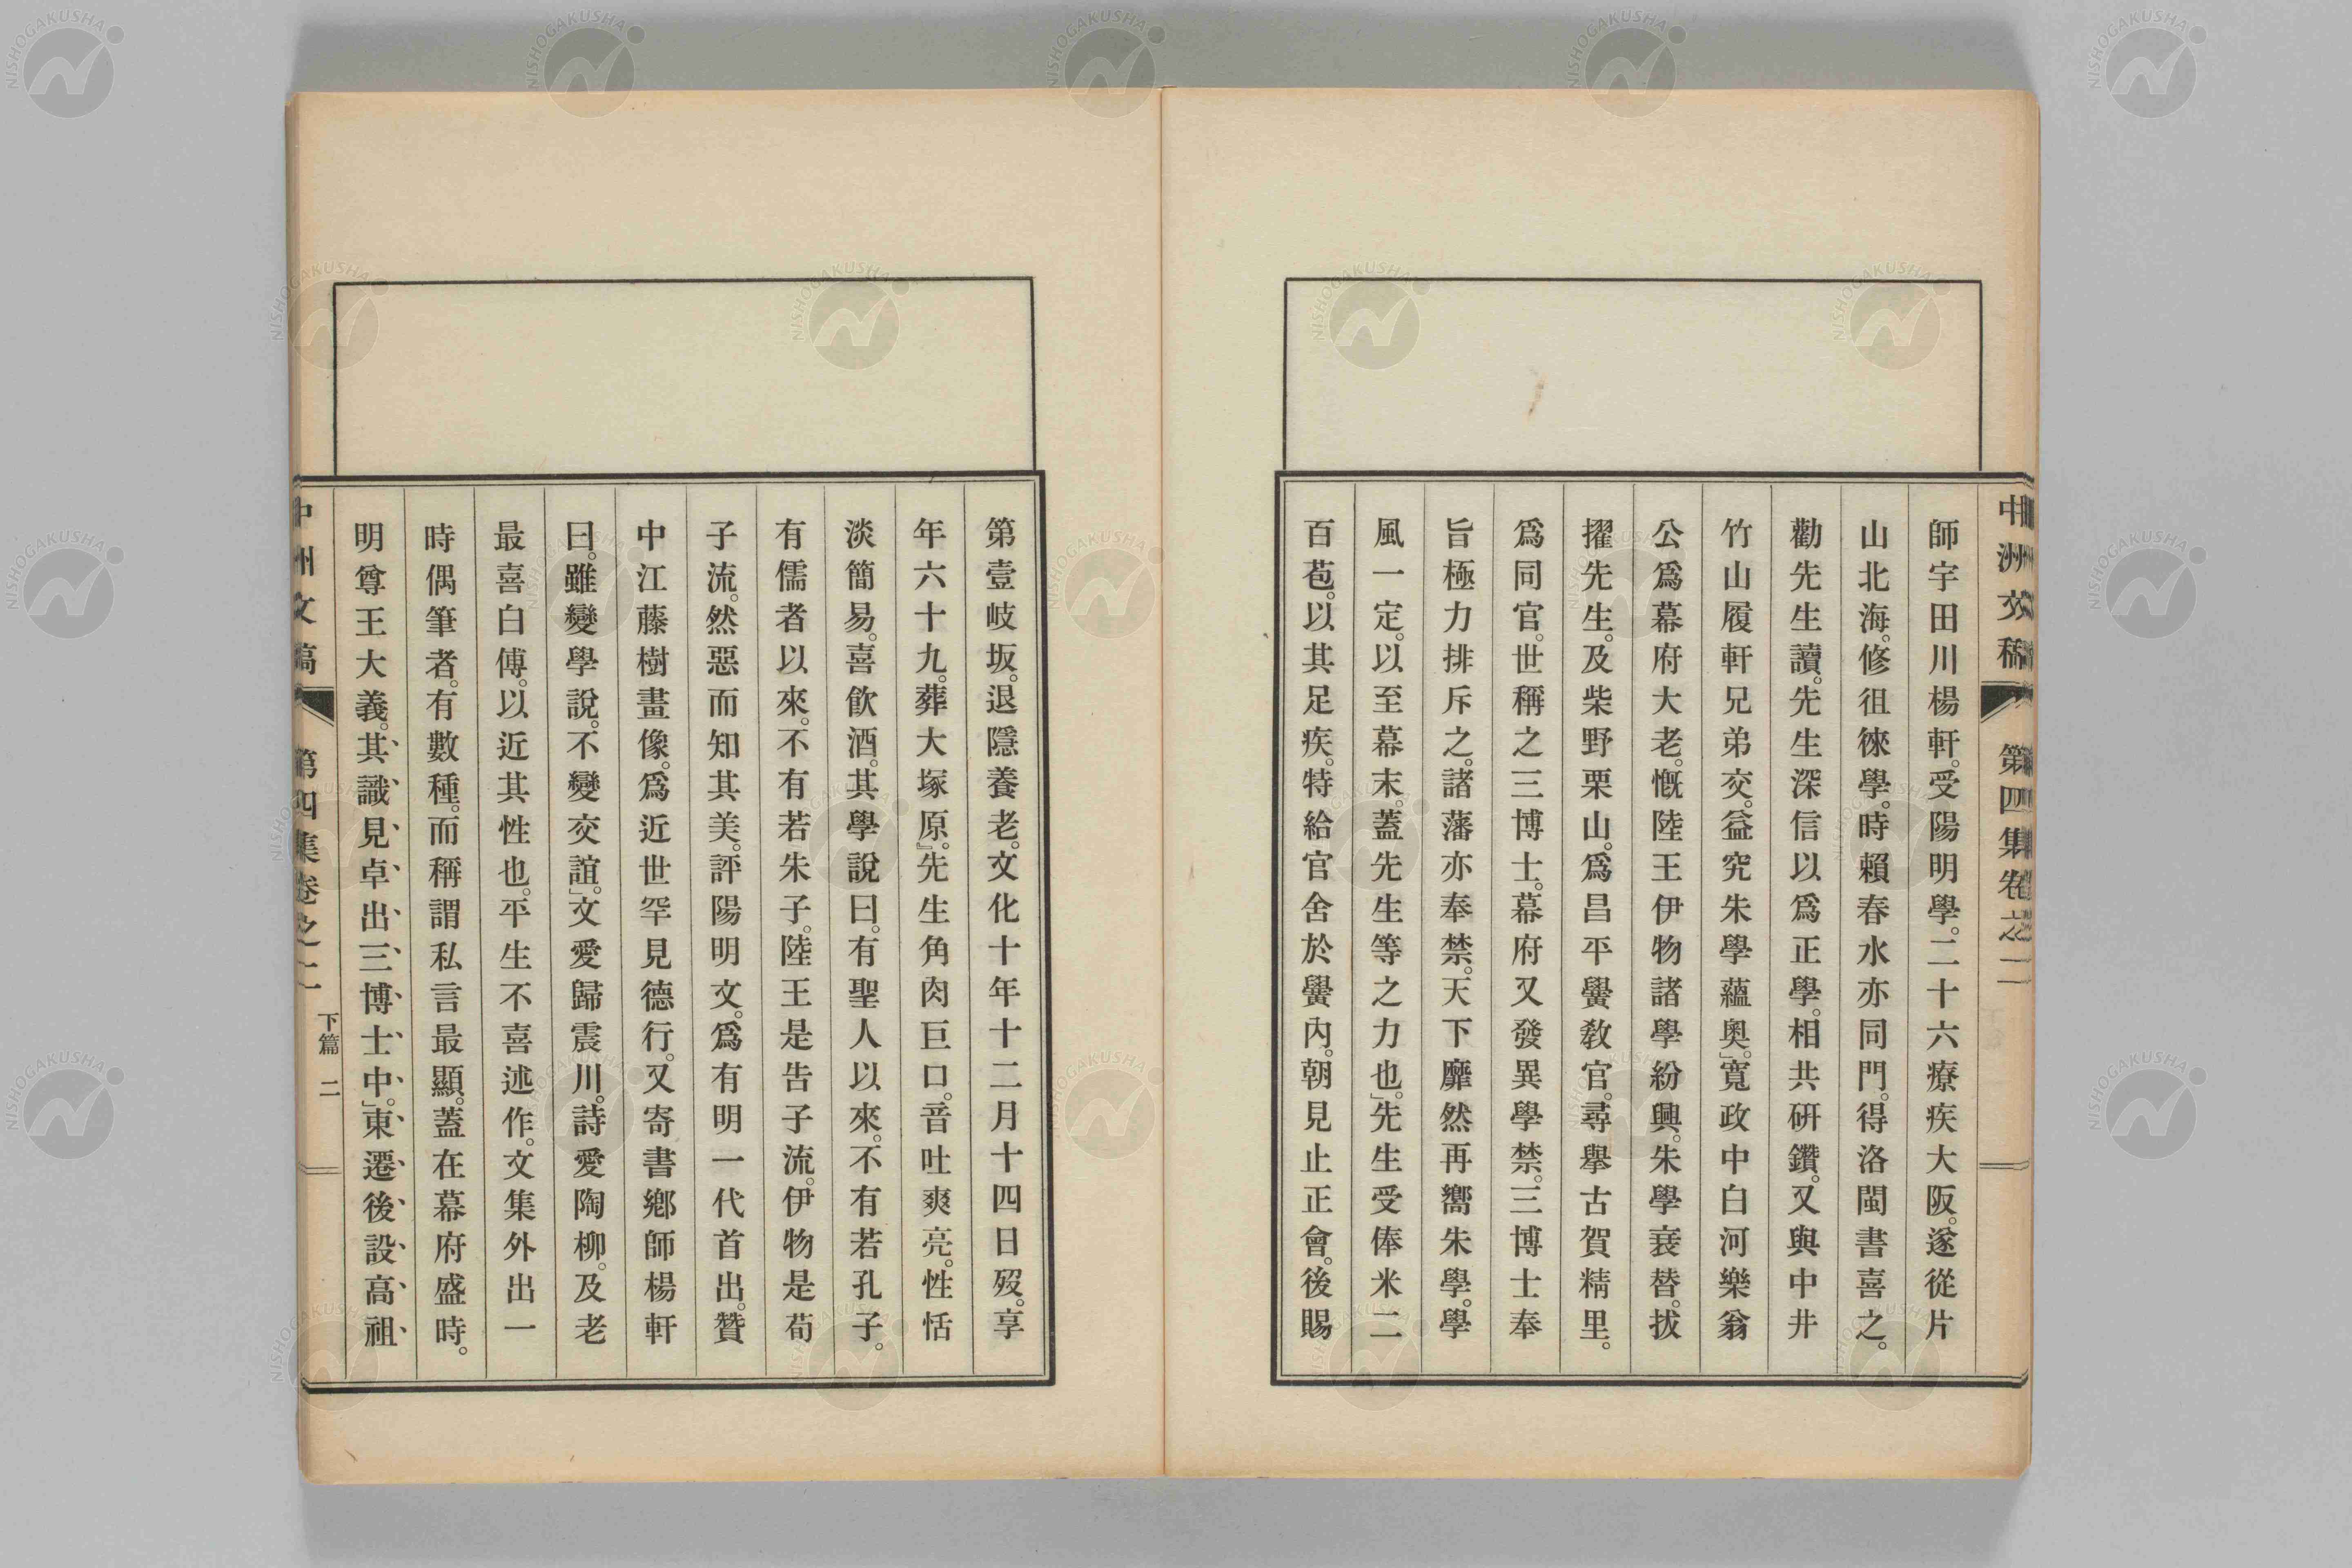 中洲文稿　第四集卷之二
師宇田川楊軒。受陽明學。二十六療疾大阪。遂從片
山北海。修徂徠學。時賴春水亦同門。得洛閩書喜之。
勸先生讀。先生深信以爲正學。相共硏鑽。又與中井
竹山履軒兄弟交。益究朱學蘊奧。」寬政中白河樂翁
公爲幕府大老。慨陸王伊物諸學紛興。朱學衰替。拔
擢先生。及柴野栗山。爲昌平黌敎官。尋擧古賀精里。
爲同官。世稱之三博士。幕府又發異學禁。三博士奉
旨極力排斥之。諸藩亦奉禁。天下靡然再嚮朱學。學
風一定。以至幕末。蓋先生等之力也。」先生受俸米二
百苞。以其足疾。特給官舍於黌內。朝見止正會。後賜
第壹岐坂。退隱養老。文化十年十二月十四日歿。享
年六十九。葬大塚原。』先生角肉巨口。音吐爽亮。性恬
淡簡易。喜飮酒。其學說曰。有聖人以來。不有若孔子。
有儒者以來。不有若朱子。陸王是告子流。伊物是荀
子流。然惡而知其美。評陽明文。爲有明一代首出。贊
中江藤樹畫像。爲近世罕見德行。又寄書鄕師楊軒
曰。雖變學說。不變交誼。」文愛歸震川。詩愛陶柳。及老
最喜白傅。以近其性也。平生不喜述作。文集外出一
時偶筆者。有數種。而稱謂私言最顯。蓋在幕府盛時。
明尊王大義。其識見卓出三博士中。」東遷後設高祖
中洲文稿　第四集卷之二　下篇　二